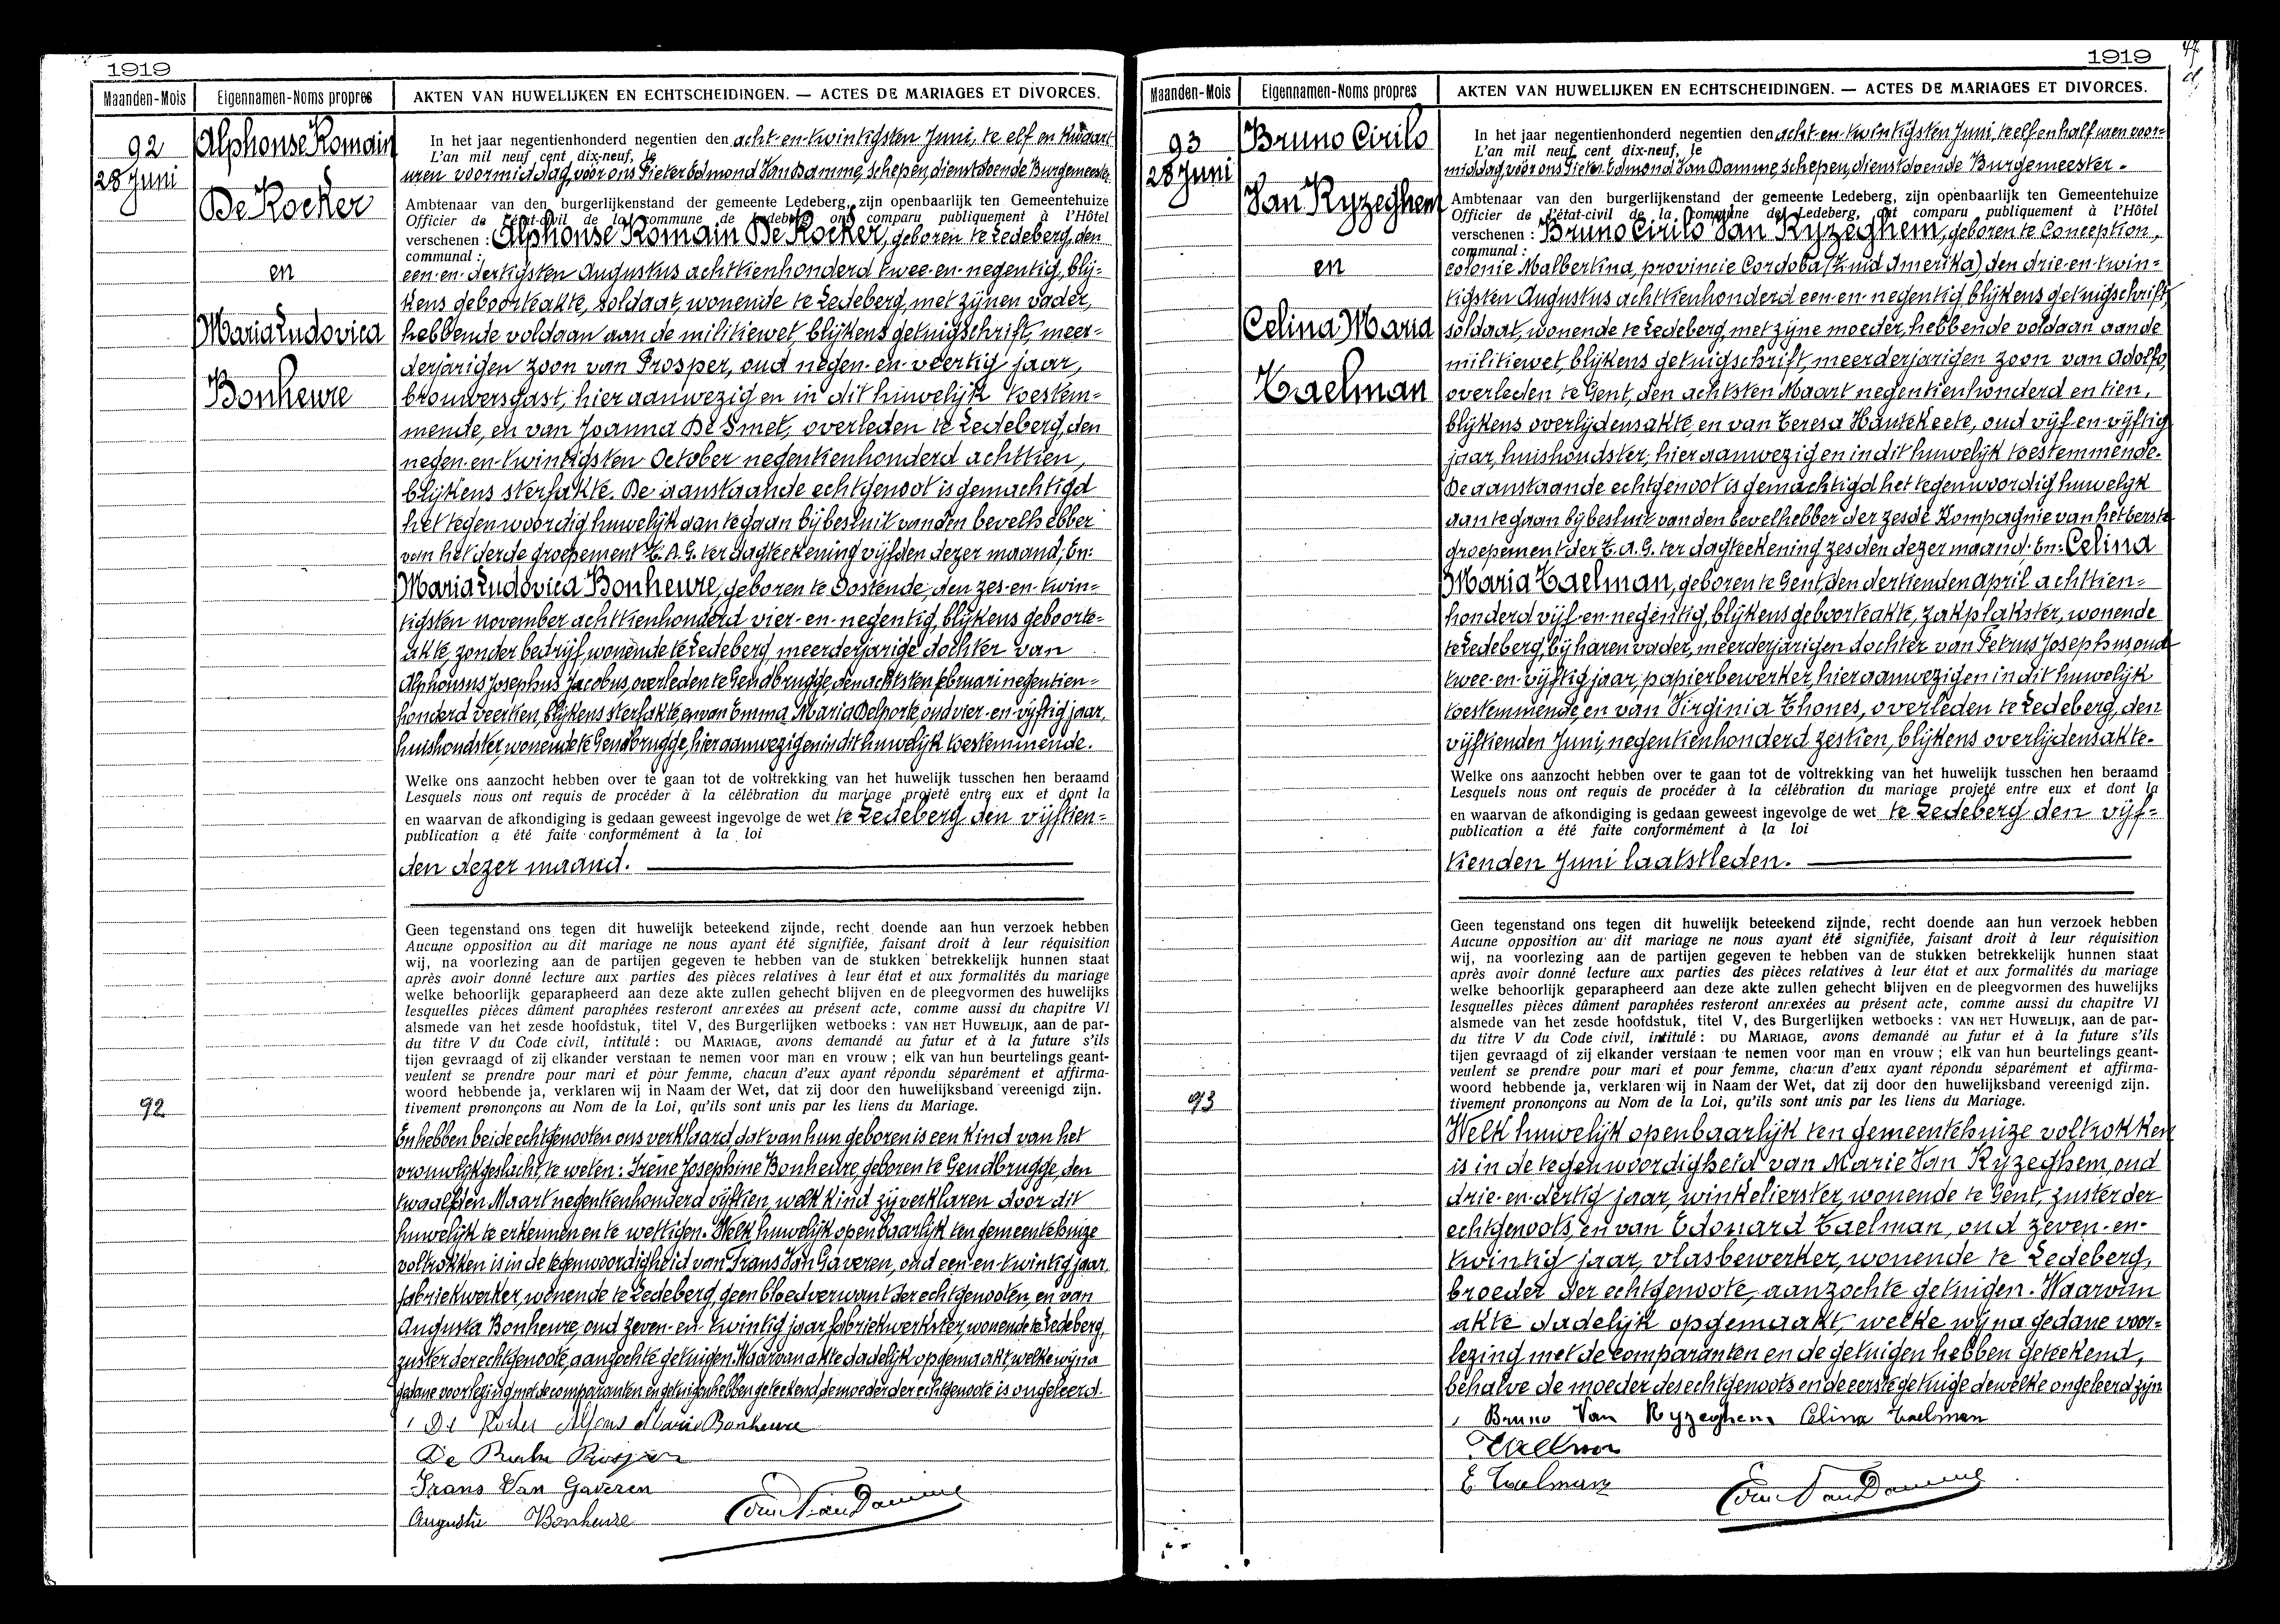 1919
Maanden-Mois
Eigennamen-Noms propres
AKTEN VAN HUWELIJKEN EN ECHTSCHEIDINGEN. — ACTES DE MARIAGES ET DIVORCES.
92
28 Juni
Alphonse Romain
De Rocker
en
Maria Ludovica
Bonheure
In het jaar negentienhonderd negentien den acht-en-twintigsten Juni, te elf en kwaart
L'an mil neuf cent dix-neuf, le
uren voormiddag, voor ons Pieter Edmond Van Damme, Schepen, dienstdoende Burgemeester
Ambtenaar van den burgerlijkenstand der gemeente Ledeberg, zijn openbaarlijk ten Gemeentehuize
Officier de l'état-civil de la commune de Ledeberg, ont comparu publiquement à l'Hôtel
verschenen : Alphonse Romain De Rocker, geboren te Ledeberg, den
communal :
een-en-dertigsten Augustus achttienhonderd twee-en-negentig, blij-
kens geboorteakte, soldaat, wonende te Ledeberg, met zijnen vader,
hebbende voldaan aan de militiewet, blijkens getuigschrift, meer-
derjarigen zoon van Prosper, oud negen-en-veertig jaar,
brouwersgast, hier aanwezig en in dit huwelijk toestem-
mende, en van Joanna De Smet, overleden te Ledeberg, den
negen-en-twintigsten October negentienhonderd achttien,
blijkens sterfakte. De aanstaande echtgenoot is gemachtigd
het tegenwoordig huwelijk aan te gaan bij besluit van den bevelhebber
van het derde groepement T. A. G. ter dagteekening vijfden dezer maand; En:
Maria Ludovica Bonheure, geboren te Oostende, den zes-en-twin-
tigsten november achttienhonderd vier-en-negentig, blijkens geboorte-
akte, zonder bedrijf, wonende te Ledeberg, meerderjarige dochter van
Alphonsus Josephus Jacobus, overleden te Gendbrugge, den achtsten februari negentien-
honderd veertien, blijkens sterfakte, en van Emma Maria Delporte, oud vier-en-vijftig jaar,
huishoudster, wonende te Gendbrugge, hier aanwezig en in dit huwelijk toestemmende.
Welke ons aanzocht hebben over te gaan tot de voltrekking van het huwelijk tusschen hen beraamd
Lesquels nous ont requis de procéder à la célébration du mariage projeté entre eux et dont la
en waarvan de afkondiging is gedaan geweest ingevolge de wet te Ledeberg den vijftien-
publication a été faite conformément à la loi
den dezer maand.
Geen tegenstand ons tegen dit huwelijk beteekend zijnde, recht doende aan hun verzoek hebben
Aucune opposition au dit mariage ne nous ayant été signifiée, faisant droit à leur réquisition
wij, na voorlezing aan de partijen gegeven te hebben van de stukken betrekkelijk hunnen staat
après avoir donné lecture aux parties des pièces relatives à leur état et aux formalités du mariage
welke behoorlijk geparapheerd aan deze akte zullen gehecht blijven en de pleegvormen des huwelijks
lesquelles pièces dûment paraphées resteront annexées au présent acte, comme aussi du chapitre VI
alsmede van het zesde hoofdstuk, titel V, des Burgerlijken wetboeks : VAN HET HUWELIJK, aan de par-
du titre V du Code civil, intitulé : DU MARIAGE, avons demandé au futur et à la future s'ils
tijen gevraagd of zij elkander verstaan te nemen voor man en vrouw ; elk van hun beurtelings geant-
veulent se prendre pour mari et pour femme, chacun d'eux ayant répondu séparément et affirma-
woord hebbende ja, verklaren wij in Naam der Wet, dat zij door den huwelijksband vereenigd zijn.
tivement prononçons au Nom de la Loi, qu'ils sont unis par les liens du Mariage.
92
En hebben beide echtgenooten ons verklaard dat van hun geboren is een kind van het
vrouwlijk geslacht, te weten: Irène Josephine Bonheure, geboren te Gendbrugge, den
twaalfden Maart negentienhonderd vijftien, welk kind zij verklaren door dit
huwelijk te erkennen en te wettigen. Welk huwelijk openbaarlijk ten gemeentehuize
voltrokken is in de tegenwoordigheid van Frans Van Gaveren, oud een-en-twintig jaar,
fabriekwerker, wonende te Ledeberg, geen bloedverwant der echtgenooten, en van
Augusta Bonheure, oud zeven-en-twintig jaar, fabriekwerkster, wonende te Ledeberg,
zuster der echtgenoote, aangezochte getuigen. Waarvan akte dadelijk opgemaakt, welke wij na
gedane voorlezing met de comparanten en getuigen hebben geteekend, de moeder der echtgenoote is ongeleerd.
Alfons Maria Bonheure
De
Frans Van Gaveren
Augusta Bonheure
1919
47
Maanden-Mois
Eigennamen-Noms propres
AKTEN VAN HUWELIJKEN EN ECHTSCHEIDINGEN. — ACTES DE MARIAGES ET DIVORCES.
93
28 Juni
Bruno Cirilo
Van Ryzeghem
en
Celina Maria
Taelman
In het jaar negentienhonderd negentien den acht-en-twintigsten Juni, te elf en half uren voor-
L'an mil neuf cent dix-neuf, le
middag, voor ons Pieter Edmond Van Damme, Schepen, dienstdoende Burgemeester -
Ambtenaar van den burgerlijkenstand der gemeente Ledeberg, zijn openbaarlijk ten Gemeentehuize
Officier de l'état-civil de la commune de Ledeberg, ont comparu publiquement à l'Hôtel
verschenen : Bruno Cirilo Van Ryzeghem, geboren te Conception,
communal :
colonie Malbertina, provincie Cordoba (Zuid Amerika), den drie-en-twin-
tigsten Augustus achttienhonderd een-en-negentig, blijkens getuigschrift,
soldaat, wonende te Ledeberg, met zijne moeder, hebbende voldaan aan de
militiewet, blijkens getuigschrift, meerderjarigen zoon van Adolfo,
overleden te Gent, den achtsten Maart negentienhonderd en tien,
blijkens overlijdensakte, en van Teresa Hautekeete, oud vijf-en-vijftig
jaar, huishoudster, hier aanwezig en in dit huwelijk toestemmende.
De aanstaande echtgenoot is gemachtigd het tegenwoordig huwelijk
aan te gaan bij besluit van den bevelhebber der zesde Kompagnie van het eerste
groepement der T. A. G. ter dagteekening zesden dezer maand. En: Celina
Maria Taelman, geboren te Gent, den dertienden april achttien-
honderd vijf-en-negentig, blijkens geboorteakte, zakplakster, wonende
te Ledeberg, bij haren vader, meerderjarigen dochter van Petrus Josephus, oud
twee-en-vijftig jaar, papierbewerker, hier aanwezig en in dit huwelijk
toestemmende, en van Virginia Thones, overleden te Ledeberg, den
vijftienden Juni, negentienhonderd zestien, blijkens overlijdensakte.
Welke ons aanzocht hebben over te gaan tot de voltrekking van het huwelijk tusschen hen beraamd
Lesquels nous ont requis de procéder à la célébration du mariage projeté entre eux et dont la
en waarvan de afkondiging is gedaan geweest ingevolge de wet te Ledeberg den vijf-
publication a été faite conformément à la loi
tienden Juni laatstleden.
Geen tegenstand ons tegen dit huwelijk beteekend zijnde, recht doende aan hun verzoek hebben
Aucune opposition au dit mariage ne nous ayant été signifiée, faisant droit à leur réquisition
wij, na voorlezing aan de partijen gegeven te hebben van de stukken betrekkelijk hunnen staat
après avoir donné lecture aux parties des pièces relatives à leur état et aux formalités du mariage
welke behoorlijk geparapheerd aan deze akte zullen gehecht blijven en de pleegvormen des huwelijks
lesquelles pièces dûment paraphées resteront annexées au présent acte, comme aussi du chapitre VI
alsmede van het zesde hoofdstuk, titel V, des Burgerlijken wetboeks : VAN HET HUWELIJK, aan de par-
du titre V du Code civil, intitulé : DU MARIAGE, avons demandé au futur et à la future s'ils
tijen gevraagd of zij elkander verstaan te nemen voor man en vrouw ; elk van hun beurtelings geant-
veulent se prendre pour mari et pour femme, chacun d'eux ayant répondu séparément et affirma-
woord hebbende ja, verklaren wij in Naam der Wet, dat zij door den huwelijksband vereenigd zijn.
tivement prononçons au Nom de la Loi, qu'ils sont unis par les liens du Mariage.
93
Welk huwelijk openbaarlijk ten gemeentehuize voltrokken
is in de tegenwoordigheid van Marie Van Ryzeghem, oud
drie-en-dertig jaar, winkelierster, wonende te Gent, zuster der
echtgenoots, en van Edouard Taelman, oud zeven-en-
twintig jaar, vlasbewerker, wonende te Ledeberg,
broeder der echtgenoote, aanzochte getuigen. Waarvan
akte dadelijk opgemaakt, welke wij na gedane voor-
lezing met de comparanten en de getuigen hebben geteekend,
behalve de moeder des echtgenoots en de eerste getuige dewelke ongeleerd zijn.
Bruno Van Ryzeghem Celina Taelman
Taelman
E Taelman